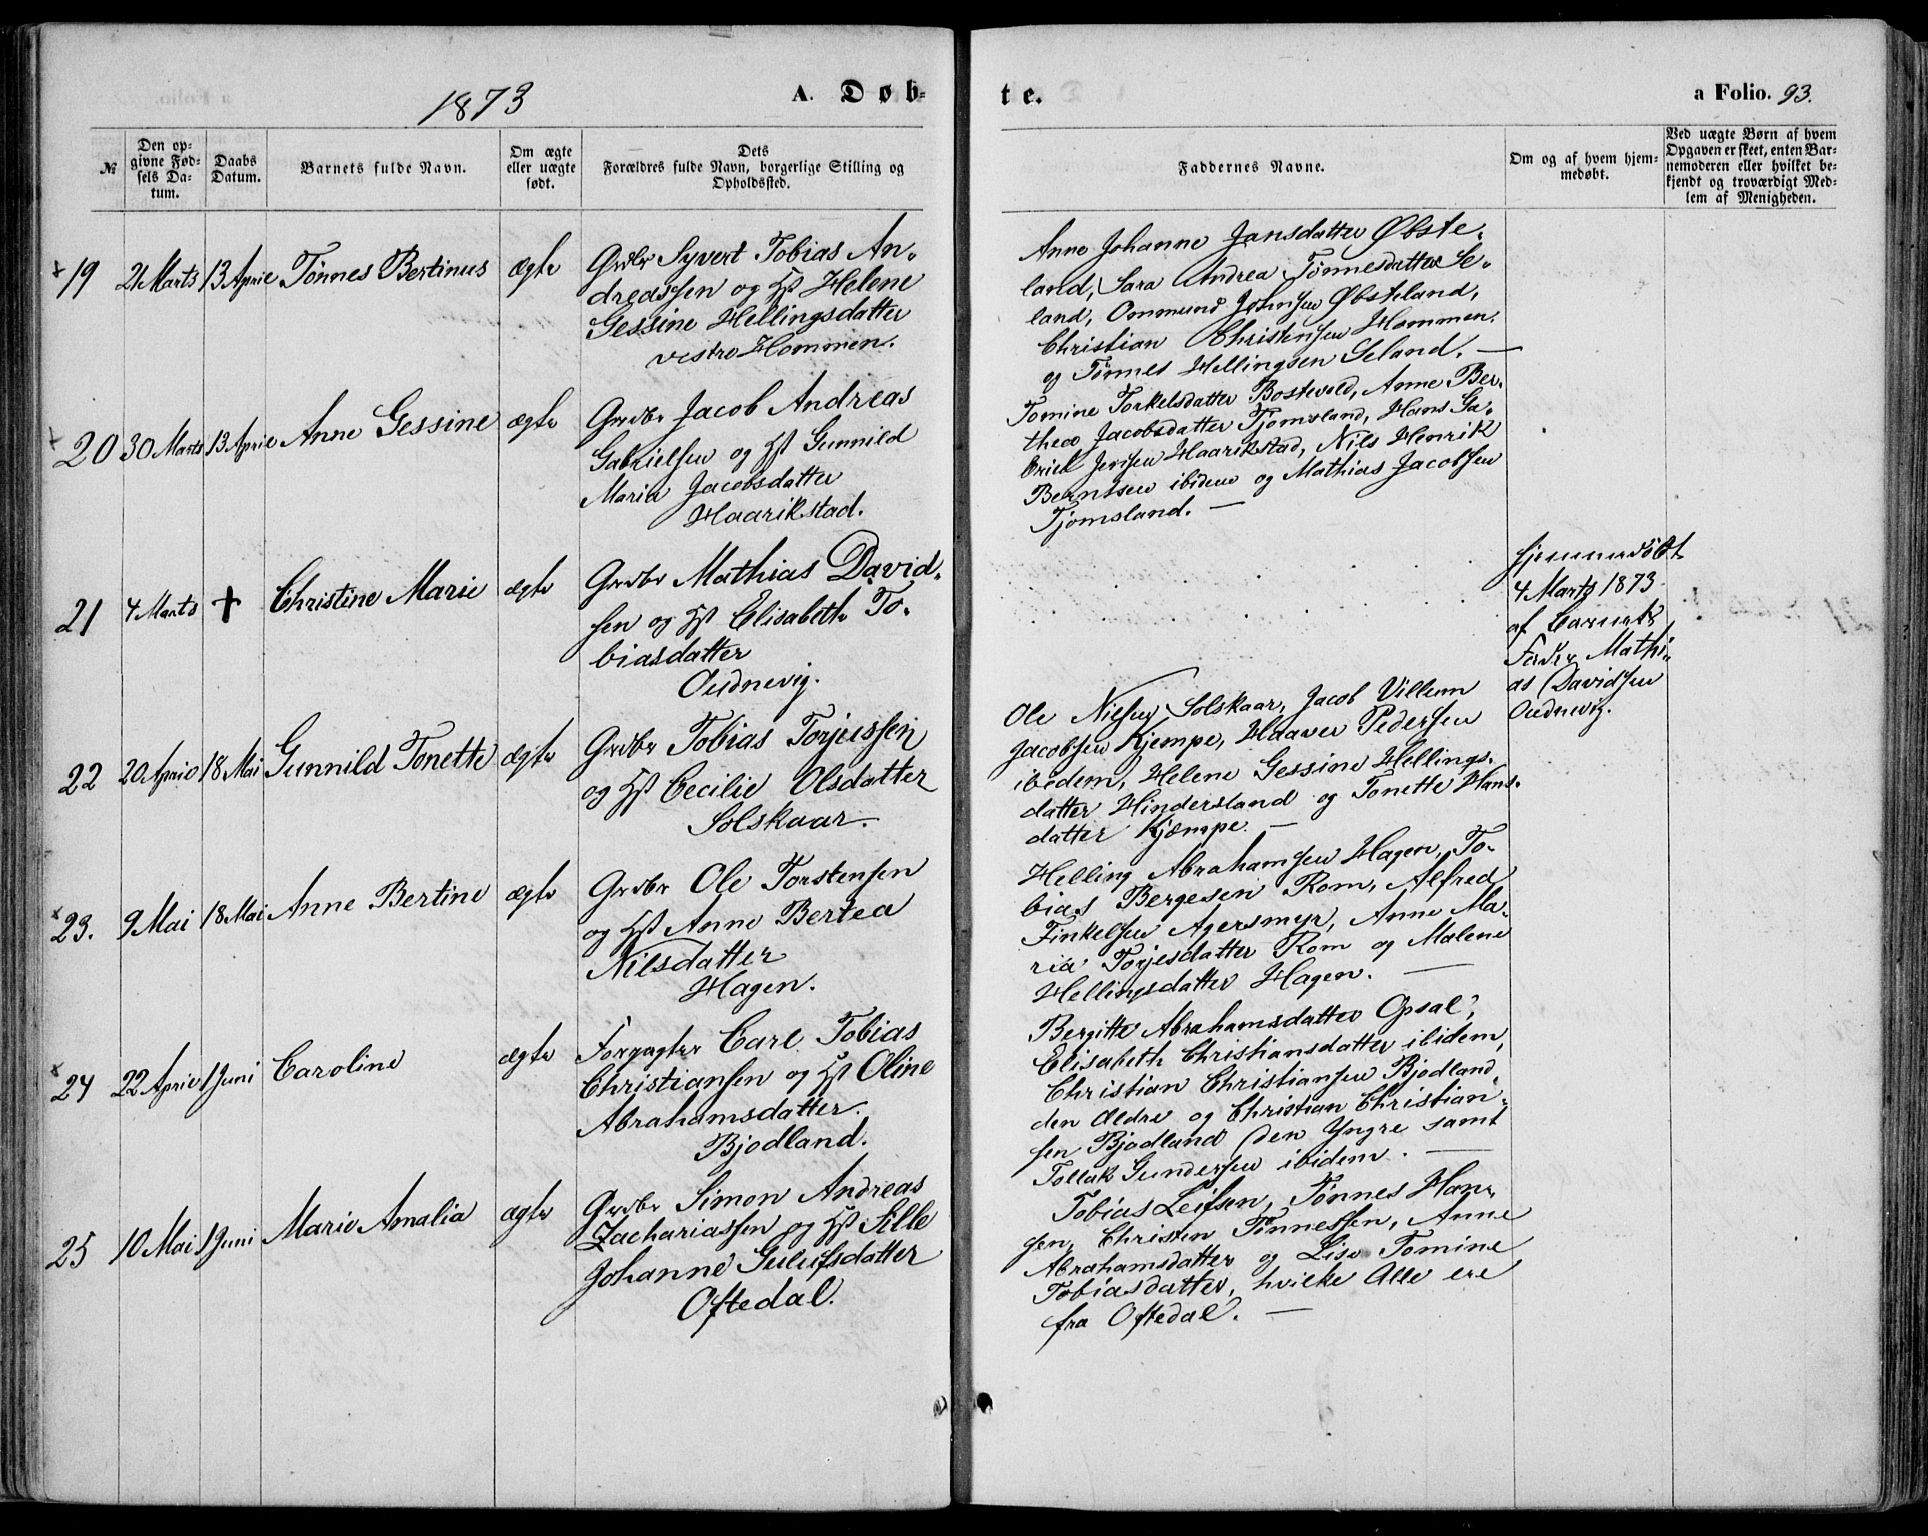 1873
A. Døb-
te.
a Folio. 93.
№
Den op-
givne Fød-
sels Da-
tum.
Daabs
Datum.
Barnets fulde Navn.
Om ægte
eller uægte
født.
Dets
Forældres fulde Navn, borgerlige Stilling og
Opholdssted.
Faddernes Navne.
Om og af hvem hjem-
medøbt.
Ved uægte Børn af hvem
Opgaven er skeet, enten Bar-
nemoderen eller hvilket be-
kjendt og troværdigt Med-
lem af Menigheden.
19 21 Marts 13 April Tønnes Bertinus ægte
Grdbr Syvert Tobias An-
dreassen og Hst Helene
Gessine Hellingsdatter
vestre Hommen.
Anne Johanne Jansdatter Øbste-
land, Sara Andrea Tønnesdatter Se-
land, Ommund Johnsen Øbsteland,
Christian Christensen Hommen.
og Tønnes Hellingsen Seland. —
20 30 Marts 13 April Anne Gessine ægte
Grdbr Jacob Andreas
Gabrielsen og Hst Gunnild
Maria Jacobsdatter
Haarikstad.
Tomine Torkelsdatter Bostvold, Anne Ber-
thea Jacobsdatter Tjomsland, Hans Ga-
briel Jensen Haarikstad, Nils Henrik
Berntsen ibidem og Mathias Jacobsen
Tjomsland. —
21 4 Marts + Christine Marie ægte
Grdbr Mathias David-
sen og Hst Elisabeth To-
biasdatter
Oudnevig.
hjemmedöbt
4 Marts 1873
af Barnets
Fader Mathi-
as Davidsen
Oudnevig.
22 20 April 18 Mai Gunnild Tonette ægte
Grdbr Tobias Torjussen
og Hst Cecilie Olsdatter
Solskaar.
Ole Nielsen Solskaar, Jacob Villum
Jacobsen Kjempe, Haaver Pedersen
ibidem, Helene Gessine Hellings-
datter Hindersland og Tonette Hans-
datter Kjæmpe. —
23. 9 Mai 18 Mai Anne Bertine ægte
Grdbr Ole Torstensen
og Hst Anne Bertea
Nilsdatter
Hagen.
Helling Abrahamsen Hagen, To-
bias Bergesen Rom, Alfred
Finkelsen Agersmyr, Anne Ma-
ria Torjesdatter Rom og Malene
Hellingsdatter Hagen. —
24 22 April 1 Juni Caroline ægte
Forpagter Carl Tobias
Christiansen og Hst Oline
Abrahamsdatter.
Bjodland.
Bergitte Abrahamsdatter Opsal,
Elisabeth Christiansdatter ibidem,
Christian Christiansen Bjodland
den Ældre og Christian Christian-
sen Bjodland den Yngre samt
Tollak Gundersen ibidem. —
25 10 Mai 1 Juni Marie Amalia ægte
Grdbr Simon Andreas
Zachariassen og Hst Sille
Johanne Gulufsdatter
Oftedal.
Tobias Leifsen, Tønnes Han-
sen, Christen Tønnessen, Anne
Abrahamsdatter og Lise Tomine
Tobiasdatter, hvilke Alle ere
fra Oftedal. —